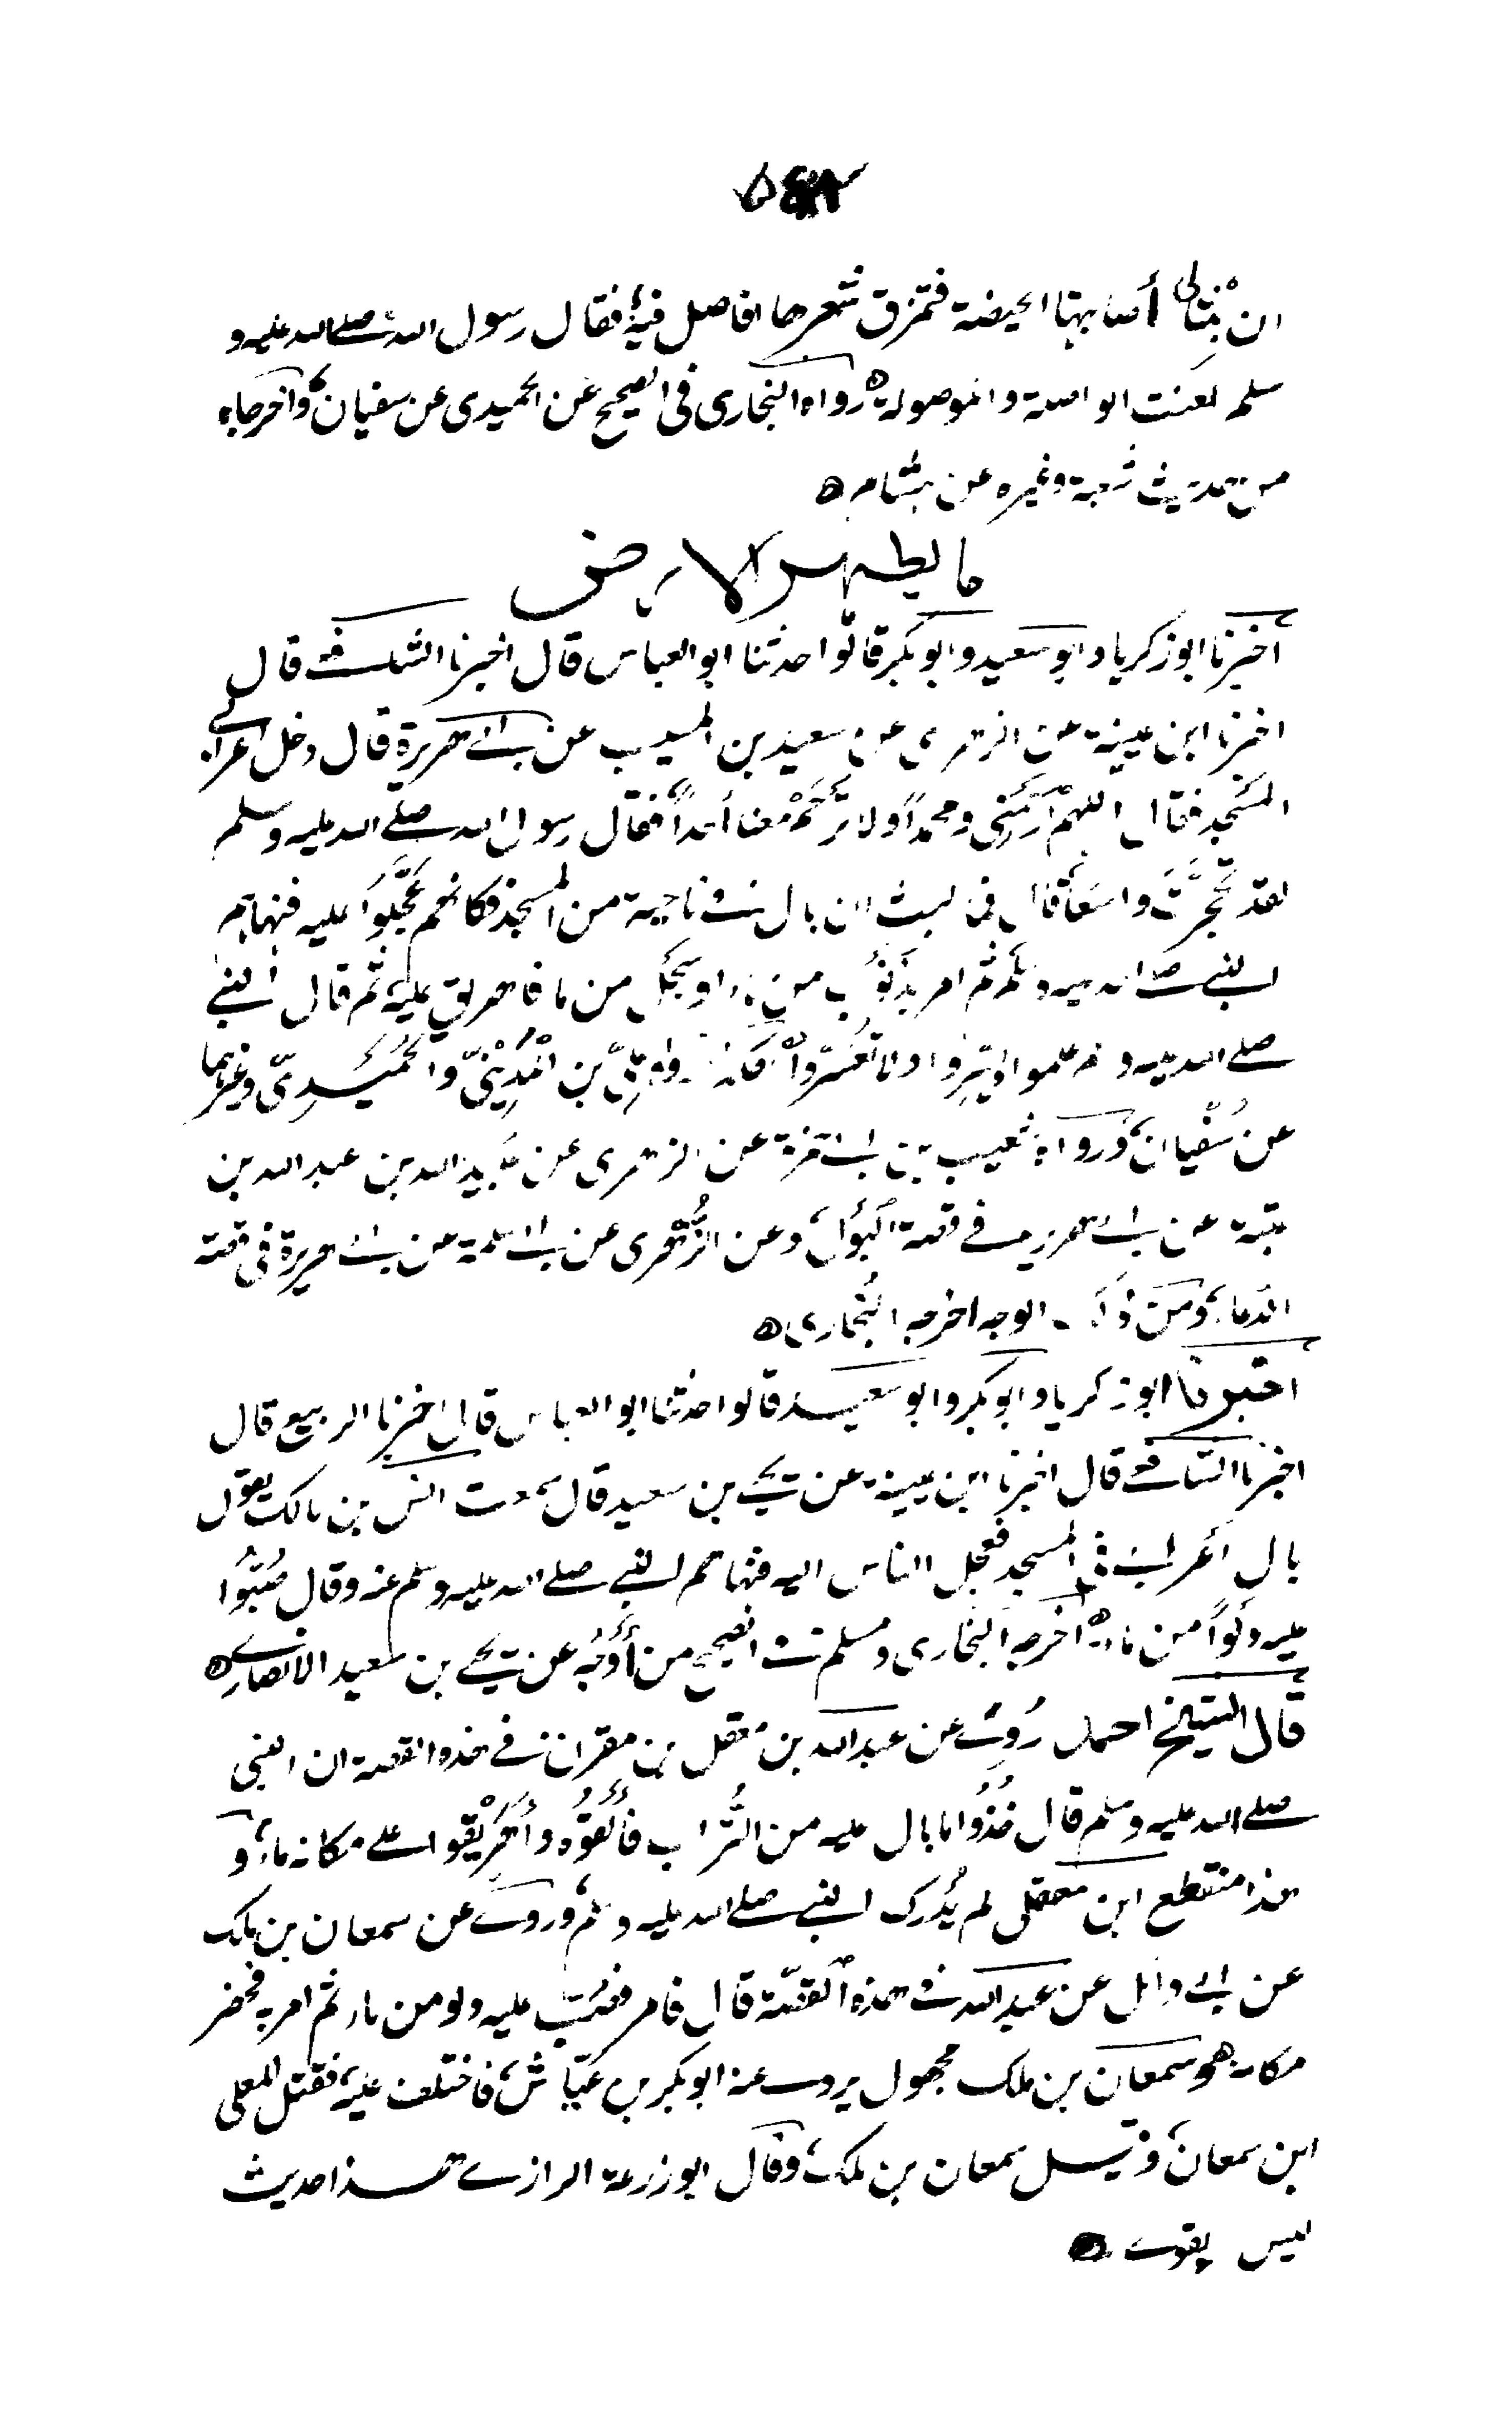 ان بنتا لى أصابتها الحيضة فتمزق شعرها افاصل فيه فقال رسول الله صلى الله عليه و
سلم لعنت الواصلة والموصولة رواه البخارى فى الصحيح عن الحميدى عن سفيان واخرجاه
من حديث شعبة وغيره عن هشام
ما يطهر الارض
أخبرنا ابو زكريا وابو سعيد وابو بكر قالوا حدثنا ابو العباس قال اخبرنا الشافعى قال
اخبرنا ابن عيينة عن الزهرى عن سعيد بن المسيب عن ابى هريرة قال دخل اعرابى
المسجد فقال اللهم ارحمنى ومحمدا ولا ترحم معنا أحدا فقال رسول الله صلى الله عليه وسلم
لقد تحجرت واسعا قال فما لبث ان بال فى ناحية من المسجد فكانهم عجلوا عليه فنهاهم
النبى صلى الله عليه وسلم ثم امر بذنوب من ماء او سجل من ما فاهريق عليه ثم قال النبى
صلى الله عليه وسلم علموا ويسروا ولا تعسروا بن المدينى والحميدى وغيرهما
عن سفيان ورواه شعيب بن ابى حمزة عن الزهرى عن عبيد الله بن عبد الله بن
عتبة عن ابى هريرة فى قصة البول وعن الزهرى عن ابى سلمة عن ابى هريرة فى قصة
الدعاء ومن ذلك الوجه اخرجه البخارى
اخبرنا ابو زكريا وابو بكر وابو سعيد قالوا حدثنا ابو العباس قال اخبرنا الربيع قال
اخبرنا الشافعى قال اخبرنا ابن عيينة عن يحيى بن سعيد قال سمعت انس بن مالك يقول
بال أعرابى فى المسجد فعجل الناس اليه فنهاهم النبى صلى الله عليه وسلم عنه وقال صبوا
عليه دلوا من ماء اخرجه البخارى ومسلم فى الصحيح من أوجه عن يحيى بن سعيد الانصارى
قال الشيخ احمد روى عن عبد الله بن معقل بن مقرن فى هذه القصة ان النبى
صلى الله عليه وسلم قال خذوا ما بال عليه من التراب فألقوه وأهريقوا على مكانه ماء و
هذا منقطع ابن معقل لم يدرك النبى صلى الله عليه وسلم وروى عن سمعان بن ملك
عن ابى وائل عن عبد الله فى هذه القصة قال فامر فصب عليه دلو من ماء ثم امر به فحفر
مكانه وهو سمعان بن ملك مجهول يروى عنه ابو بكر بن عياش فاختلف عليه فقيل المعلى
ابن سمعان وقيل سمعان بن ملك وقال ابو زرعة الرازى هذا حديث
ليس بقوى